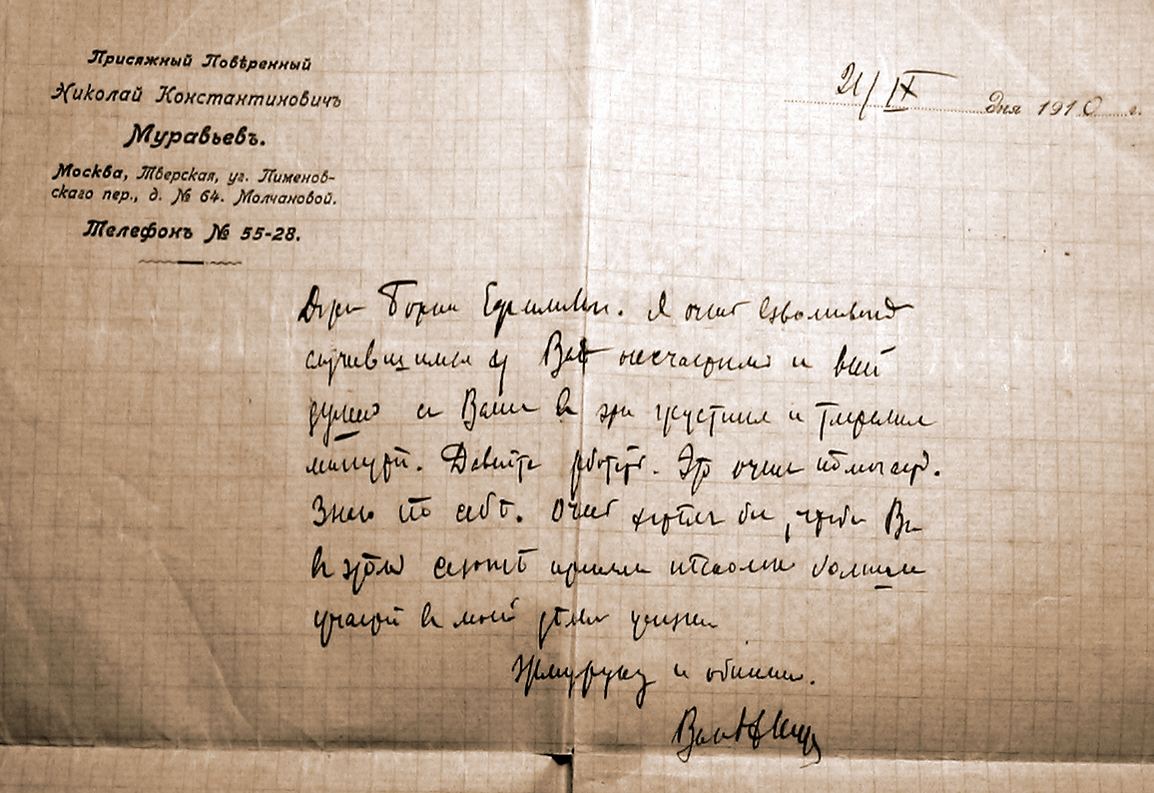 Присяжный Повѣренный
Николай Константиновичъ
Муравьевъ.
Москва, Тверская, уг. Пименов-
скаго пер., д. № 64. Молчановой.
Телефонъ № 55-28.
21/IX дня 1910 г.
Борис Ефимович. Я очень взволнован
случившимся у Вас несчастием и всей
душею с Вами в эти грустные и тяжелые
минуты. Давайте работать. Это очень помогает.
Знаю по себѣ. Очень хотѣл бы, чтобы Вы
в этом сезонѣ приняли нѣсколько большее
участие в моей
Жму руку и обнимаю.
Ваш